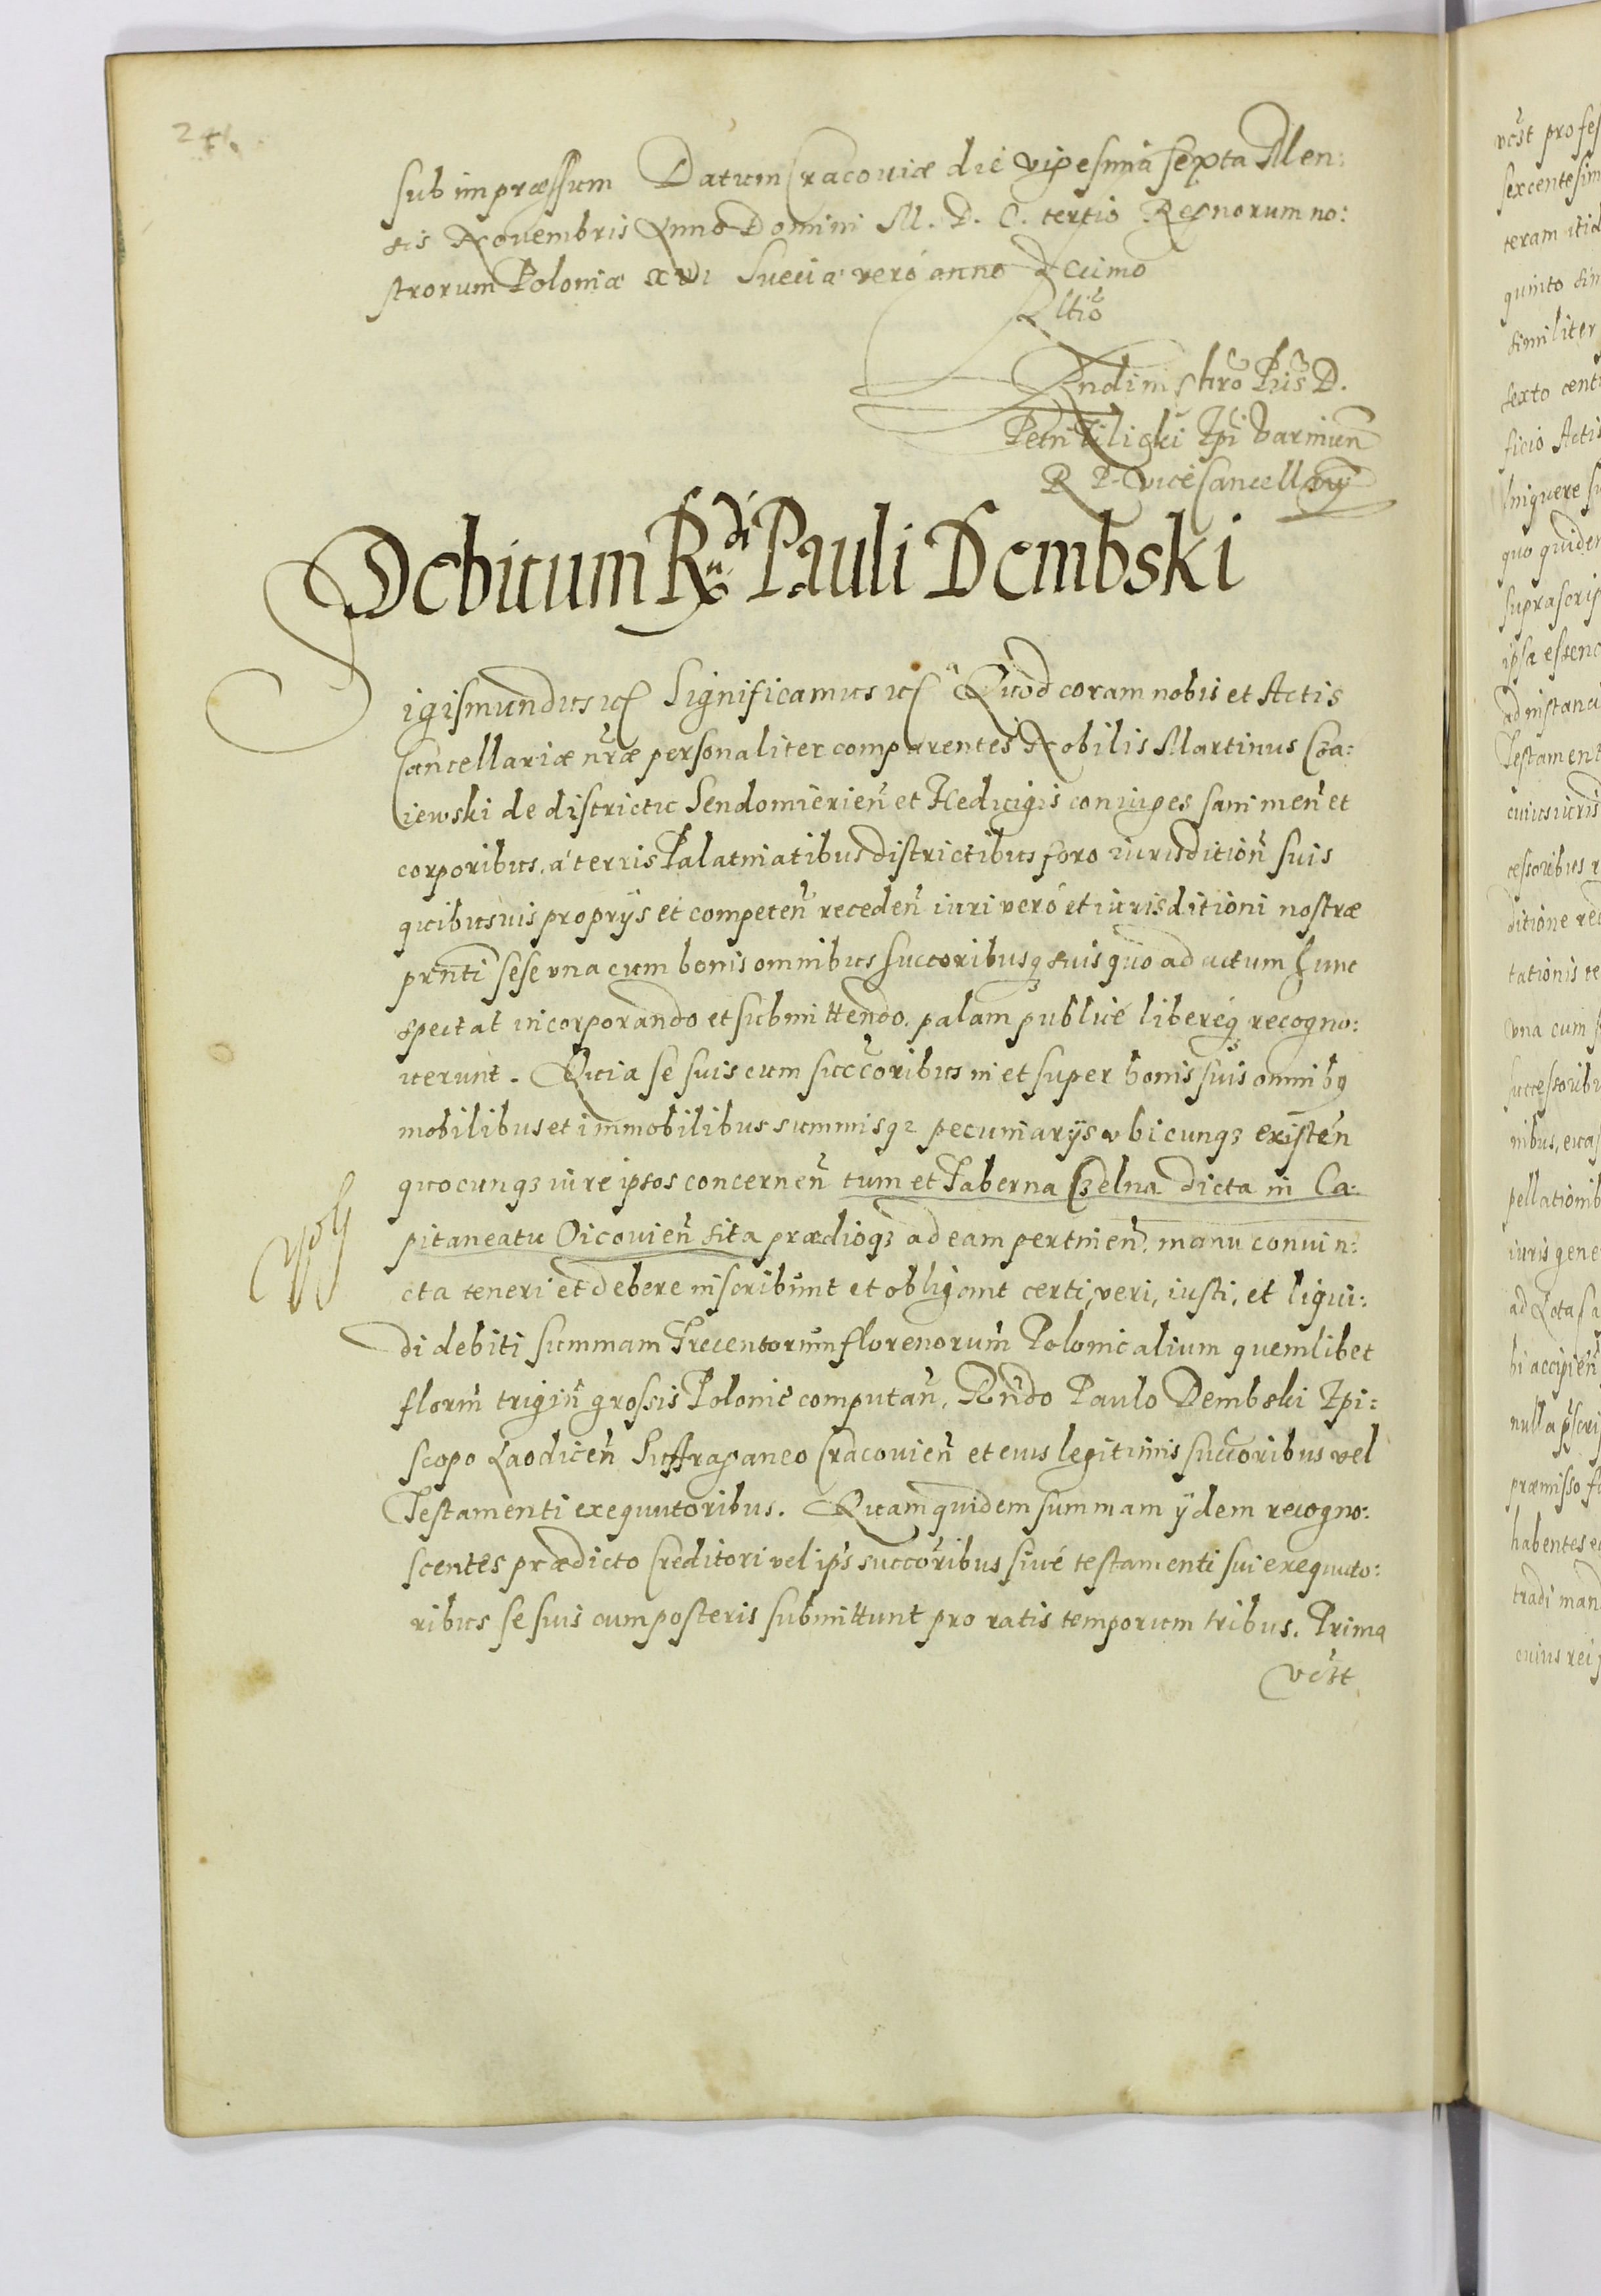 241.
sub impræssum Datum Cracoviæ die vigesima sexta Men:
sis Novembris Anno Domini M. D. C. tertio Regnorum no:
strorum Poloniæ xvi Sueciæ veró anno decimo
Rltio
Rndi in Chro Pris D.
Petri Tiliczki Epi Varmien
R P. vice Cancellarij
Debitum Rndi Xo Pauli Dembski
Sigismundus etc Significamus etc Quod coram nobis et Actis
Cancellariæ nræ personaliter comparentes Nobilis Martinus Cza:
iewski de districtu Sendomirien et Hedvigis coniuges sani men et
corporibus, á terris Palatinatibus districtibus foro iurisdition suis
quibusvis proprijs et competen receden iuri veró et iurisditioni nostræ
prnti sese una cum bonis omnibus succoribusq suis quo ad actum hunc
spectat incorporando et submittendo. palam publicé liberéq recogno:
verunt. Quia se suis cum succoribus in et super bonis suis omnibq
mobilibus et immobilibus summisqz pecuniarijs ubicunqz existen
quocunqz iure ipsos concernen tum et Taberna Czelna dicta in Ca:
pitaneatu Oicovien sita prædioqz ad eam pertinen. manu coniun:
cta teneri et debere inscribunt et obligant certi, veri, iusti, et liqui:
di debiti summam Trecentorum florenorum Polonicalium quemlibet
florin trigin grossis Polonic computan, Rndo Paulo Dembski Epi:
scopo Laodicen Suffraganeo Cracovien et eius legitimis succoribus vel
Testamenti exequutoribus. Quam quidem summam ijdem recogno:
scentes prædicto Creditori vel ips succoribus sivé testamenti sui exequuto:
ribus se suis cum posteris submittunt pro ratis temporum tribus. Prima
vdst
vdst profes
sexcentesim
teram itid
quinto sim
similiter
sexto cent
ficio Actis
quo quidem
suprascrip
ad instanci
Testament
cuius iuris
cessoribus
ditione rec
tationis te
una cum
successoribu
nibus, evas
pellationib
iuris gene
bi accipien
præmisso
habentes
tradi mand
cuius rei